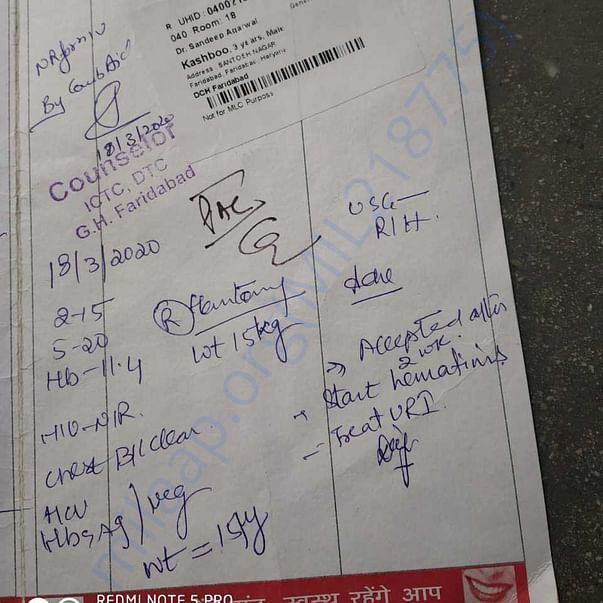 R UHID: 0400
040 Room: 18
Dr. Sandeep Agarwal
Kashboo, 3 years, Male
Address SANTOSH NAGAR
Faridabad, Faridabad, Haryana
DCH Faridabad
Not for MLC Purpose
By
18/3/2020
Counselor
ICTC, DTC
G.H. Faridabad
PAC
18/3/2020
2-15
5-20
Hb-11.4
HIV-N/R.
Chest B/L clear.
HCV
HbsAg / Neg
wt = 15kg
(R)
wt 15kg
USG-
RIH.
done
Accepted after
2 wk.
Start hematinics
- Treat URI.
milaap.org
स्वस्थ रहेंगे आप
REDMI NOTE 5 PRO